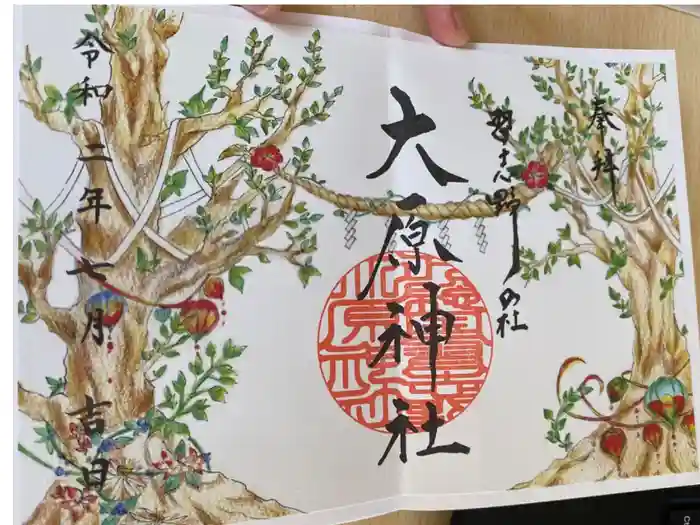 奉拝
習志野の社
大原神社
令和二年七月吉日